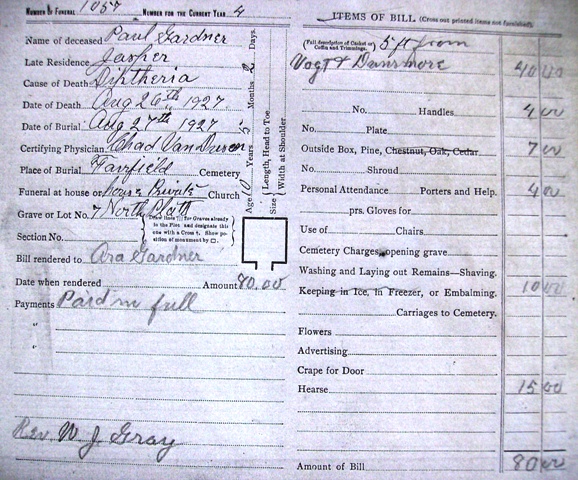 NUMBER OF FUNERAL 1057 NUMBER FOR THE CURRENT YEAR 4
Name of deceased Paul Gardner
Late Residence Jasper
Cause of Death Diptheria
Date of Death Aug 26th, 1927.
Date of Burial Aug 27th 1927
Certifying Physician Chad Van
Place of Burial Fairfield Cemetery
Funeral at house or house Private Church
Grave or Lot No. 7 North Platt
Section No.
(Draw lines for Graves already in the Plot and designate this one with a Cross. Show position of monument by □.)
Bill rendered to Ora Gardner
Date when rendered Amount 80.00
Payments Paid in full
"
"
Rev. W J Gray
Age 10 Years 5 Months 2 Days.
Size { Length, Head to Toe
Width at Shoulder
ITEMS OF BILL (Cross out printed items not furnished)
(Full description of Casket or Coffin and Trimmings.) 5 ft from
Vogt & Dunsmore 40 00
No. Handles 4 00
No. Plate
Outside Box, Pine, Chestnut, Oak, Cedar 7 00
No. Shroud
Personal Attendance Porters and Help. 4 00
prs. Gloves for
Use of Chairs
Cemetery Charges, opening grave
Washing and Laying out Remains—Shaving.
Keeping in Ice, in Freezer, or Embalming. 10 00
Carriages to Cemetery.
Flowers
Advertising.
Crape for Door
Hearse 15 00
Amount of Bill 80 00